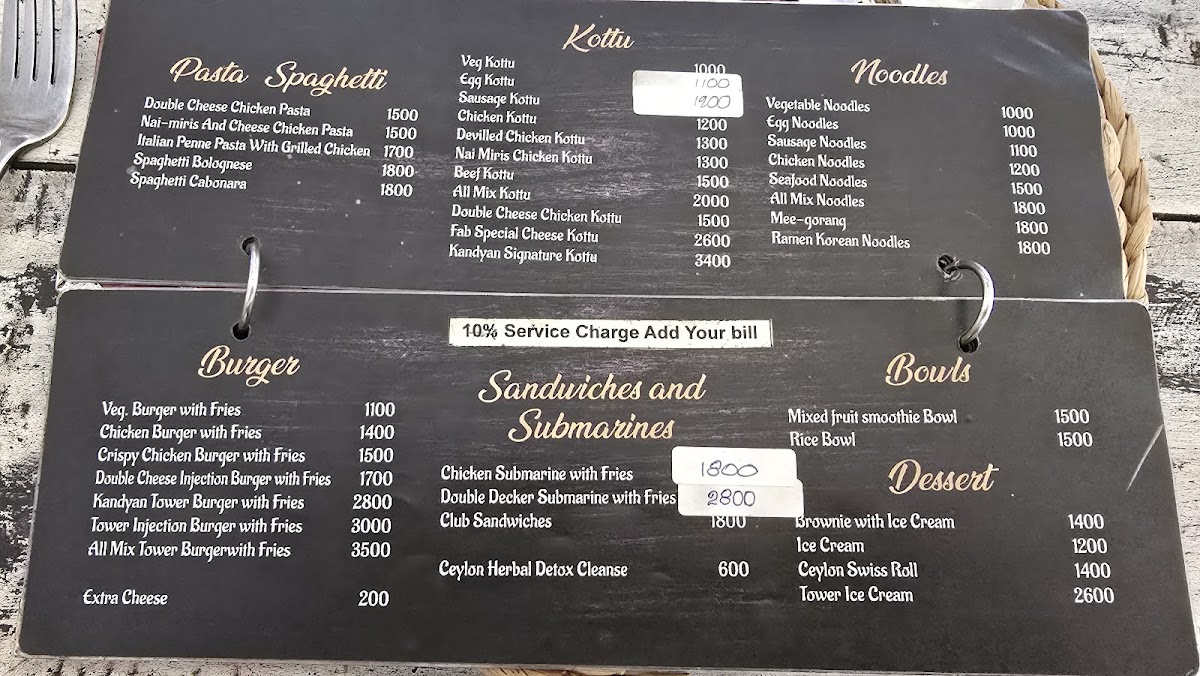 Pasta Spaghetti
Double Cheese Chicken Pasta 1500
Nai-miris And Cheese Chicken Pasta 1500
Italian Penne Pasta With Grilled Chicken 1700
Spaghetti Bolognese 1800
Spaghetti Cabonara 1800
Kottu
Veg Kottu 1000
Egg Kottu 1100
Sausage Kottu 1900
Chicken Kottu 1200
Devilled Chicken Kottu 1300
Nai Miris Chicken Kottu 1300
Beef Kottu 1500
All Mix Kottu 2000
Double Cheese Chicken Kottu 1500
Fab Special Cheese Kottu 2600
Kandyan Signature Kottu 3400
Noodles
Vegetable Noodles 1000
Egg Noodles 1000
Sausage Noodles 1100
Chicken Noodles 1200
Seafood Noodles 1500
All Mix Noodles 1800
Mee-gorang 1800
Ramen Korean Noodles 1800
10% Service Charge Add Your bill
Burger
Veg. Burger with Fries 1100
Chicken Burger with Fries 1400
Crispy Chicken Burger with Fries 1500
Double Cheese Injection Burger with Fries 1700
Kandyan Tower Burger with Fries 2800
Tower Injection Burger with Fries 3000
All Mix Tower Burgerwith Fries 3500
Extra Cheese 200
Sandwiches and
Submarines
Chicken Submarine with Fries 1800
Double Decker Submarine with Fries 2800
Club Sandwiches 1800
Ceylon Herbal Detox Cleanse 600
Bowls
Mixed fruit smoothie Bowl 1500
Rice Bowl 1500
Dessert
Brownie with Ice Cream 1400
Ice Cream 1200
Ceylon Swiss Roll 1400
Tower Ice Cream 2600